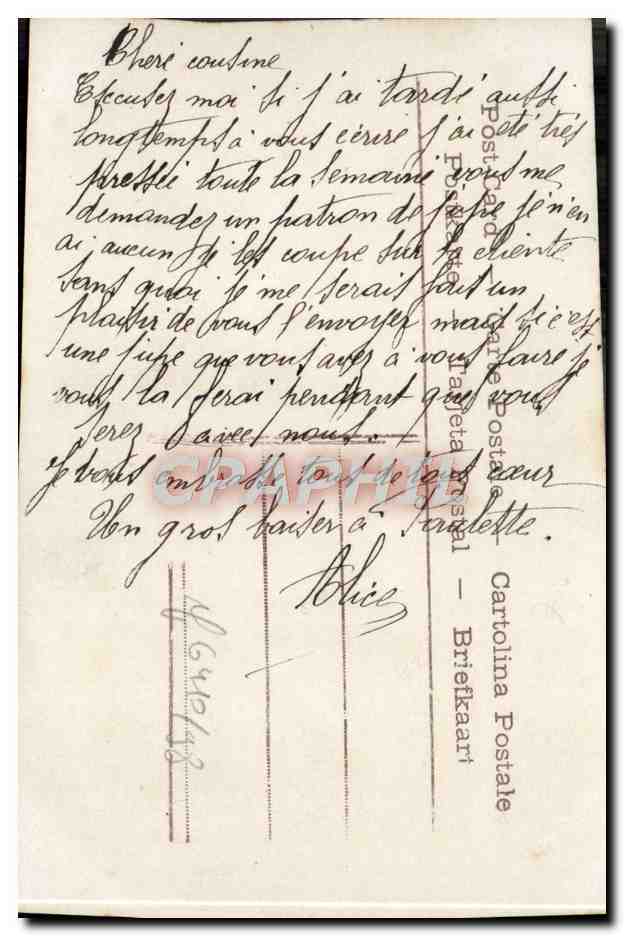 Cheré cousine
Excusez moi si j'ai tardé aussi
longtemps à vous écrire j'ai été très
pressée toute la semaine vous me
demandez un patron de jupe je n'en
ai aucun je les coupe sur la cliente
sans quoi je me serais fait un
plaisir de vous l'envoyez mais si c'est
une jupe que vous avez à vous faire je
vous la ferai pendant que vous
serez avec nous.
Je vous embrasse tous de tout cœur
Un gros baiser à Paulette.
Alice
Post Card — Carte Postale — Cartolina Postale
Postkarte — Tarjeta Postal — Briefkaart
6410/98
CPAPHIL